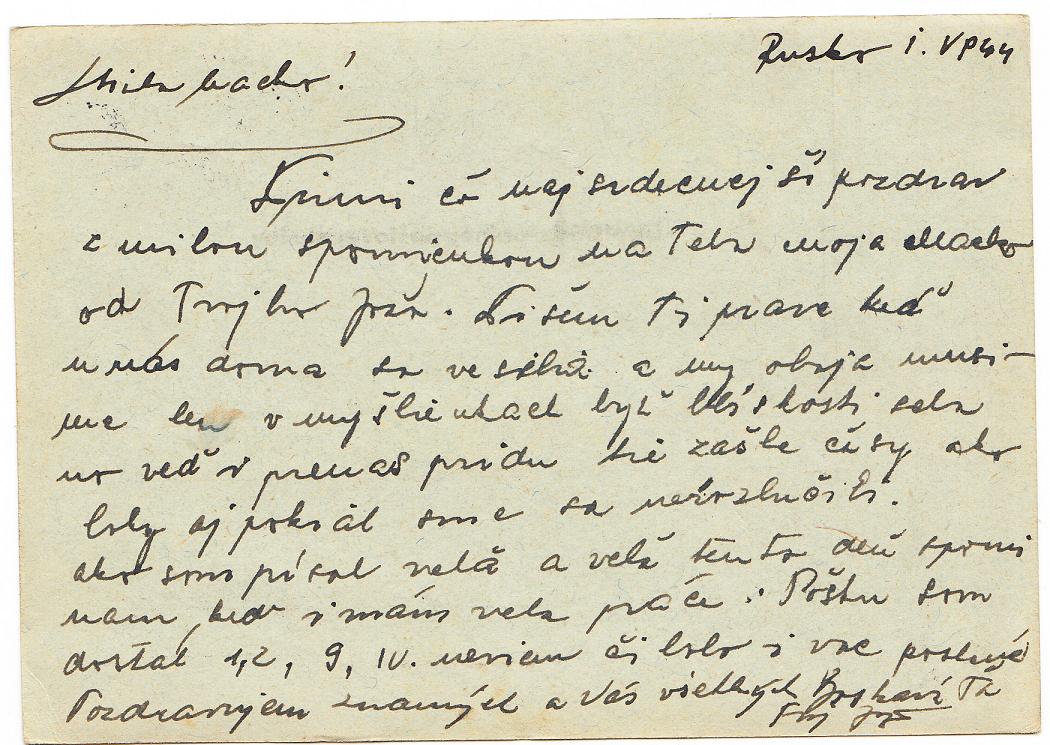 Rusko 1. V 944
Milá Macko!
Primi čo najsrdecnejší pozdrav
z milou spomienkou na Teba moja Macko
od Tvojho Joža. Píšem Ti prave keď
u nás doma sa veselia a my obaja musí-
me len v myšlienkach byť blískosti seba
no veď i prenas prídu tie zašle časy ako
boly aj pokiál sme sa nerozlučili.
ako som písal velá a velá tento deň spomí
nam, keď i mám vela práce. Poštu som
dostal 1, 2, 9, IV. neviem či bolo i vac poslané
Pozdravujem znamých a Vás vietkých Bozkáví Ťa
Tvoj Jožo